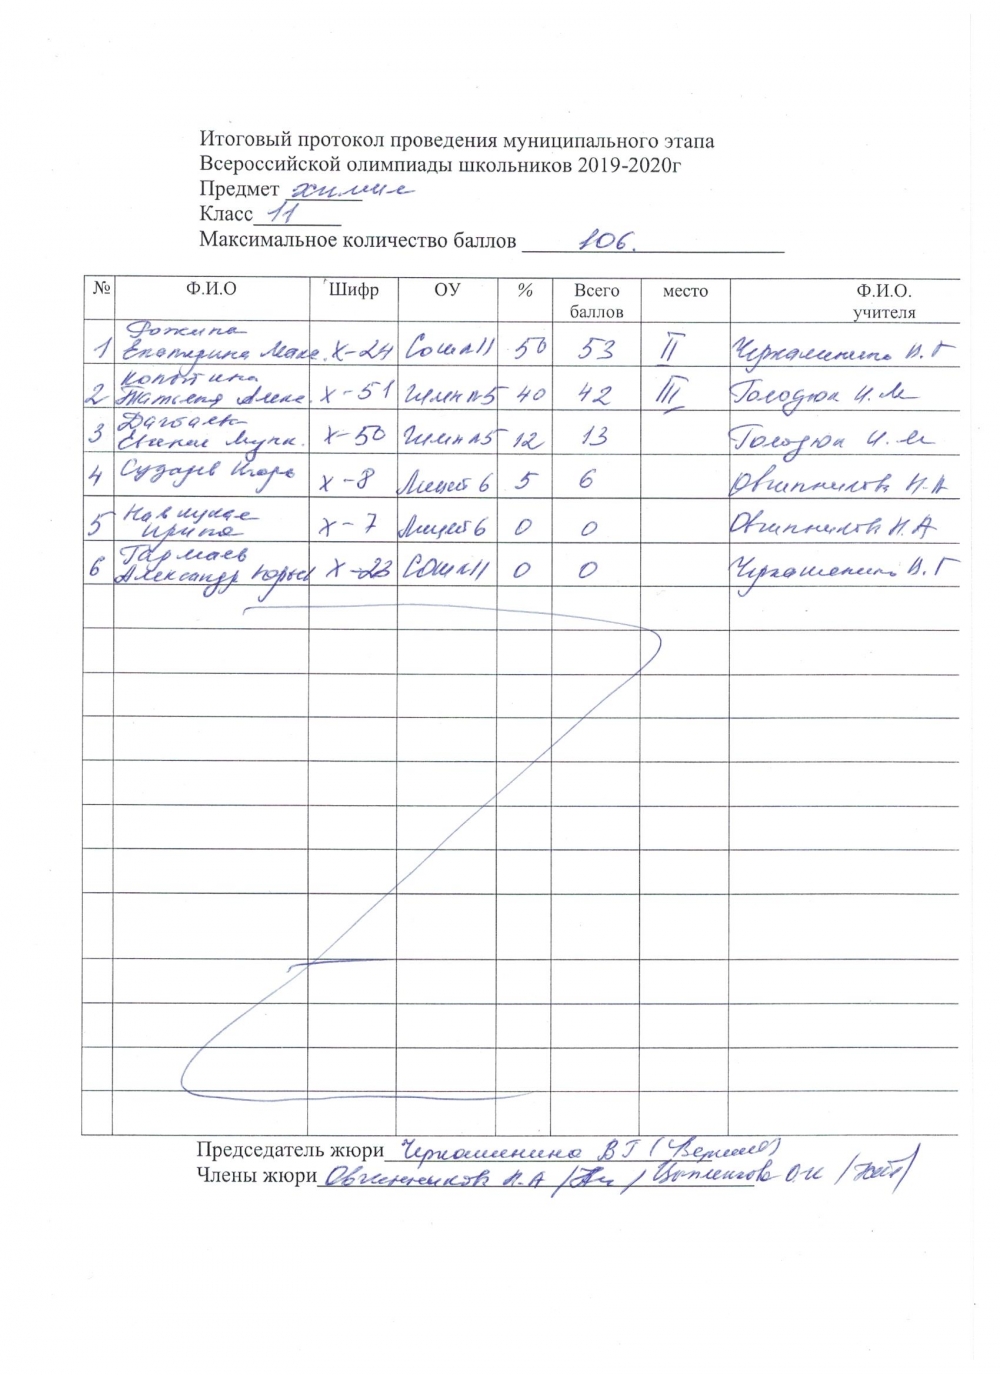 Итоговый протокол проведения муниципального этапа
Всероссийской олимпиады школьников 2019-2020г
Предмет химия
Класс 11
Максимальное количество баллов 106.
№ Ф.И.О Шифр ОУ % Всего баллов место Ф.И.О. учителя
1 Екатерина Макс. Х-24 Сош п11 50 53 II Черкашенина В.Г
2 Копытина Татьяна Алекс. Х-51 Гимн п5 40 42 III Голодюк И.М
3 Евгений Мунк. Х-50 Гимн п5 12 13 Голодюк И.М
4 Игорь Х-8 Лицей 6 5 6 Овчинников Н.А
5 Ирина Х-7 Лицей 6 0 0 Овчинников Н.А
6 Гармаев Александр Юрьев Х-23 СОШ п11 0 0 Черкашенина В.Г
Председатель жюри Черкашенина ВГ
Члены жюри Овчинников Н.А О.И